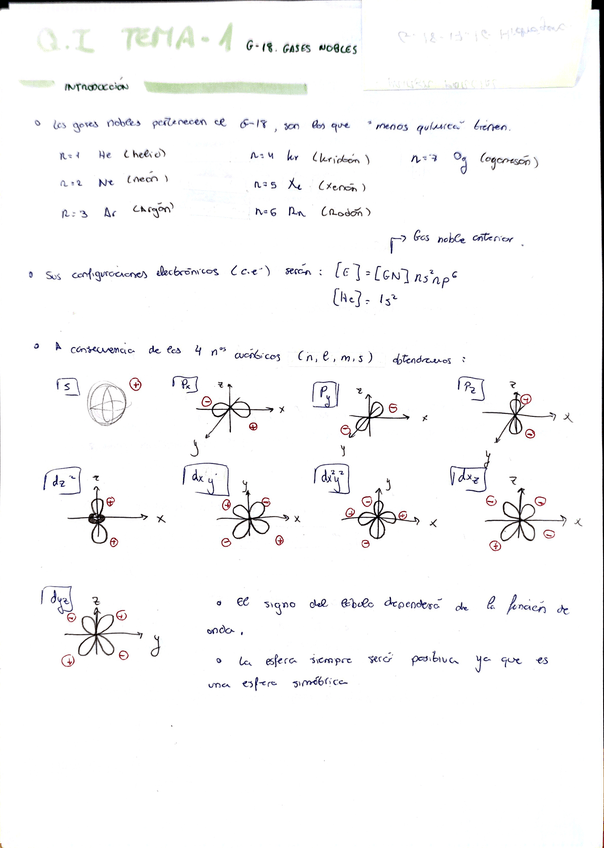 Q.I TEMA-1 G-18. GASES NOBLES
INTRODUCCIÓN
Los gases nobles pertenecen al G-18, son los que "menos química" tienen.
n=1 He (helio) n=4 kr (kriptón) n=7 Og (oganesón)
n=2 Ne (neón) n=5 Xe (xenón)
n=3 Ar (Argón) n=6 Rn (Radón)
Gas noble anterior.
Sus configuraciones electrónicas (c.e⁻) serán: [E]=[GN] ns²np⁶
[He]= 1s²
A consecuencia de los 4 nºs cuánticos (n, l, m, s) obtendremos:
S + Px z - x + y Py z - - x y Pz z + x + y
dz² z + x + dxy y + - x - + dx²y² y - + + x - dxz z + - x + -
dyz z - + y + -
El signo del lóbulo dependerá de la función de
onda.
La esfera siempre será positiva ya que es
una esfera simétrica